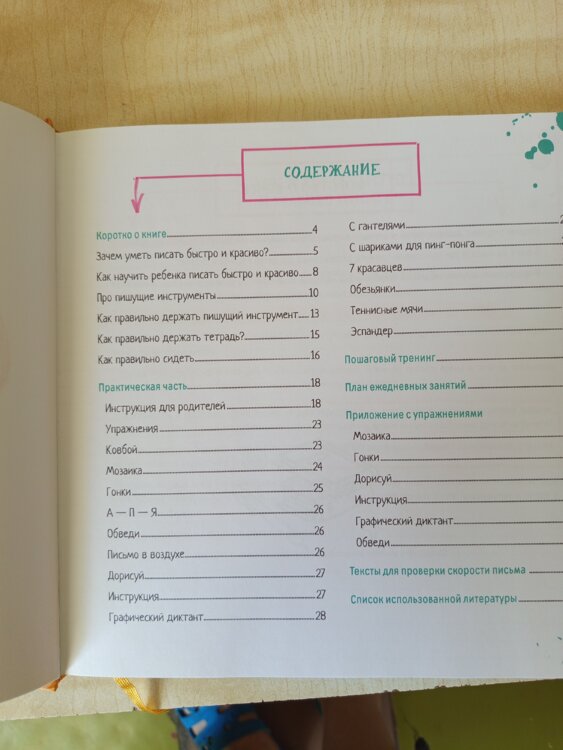 СОДЕРЖАНИЕ
Коротко о книге 4
Зачем уметь писать быстро и красиво? 5
Как научить ребенка писать быстро и красиво 8
Про пишущие инструменты 10
Как правильно держать пишущий инструмент 13
Как правильно держать тетрадь? 15
Как правильно сидеть 16
Практическая часть 18
Инструкция для родителей 18
Упражнения 23
Ковбой 23
Мозаика 24
Гонки 25
А — П — Я 26
Обведи 26
Письмо в воздухе 26
Дорисуй 27
Инструкция 27
Графический диктант 28
С гантелями
С шариками для пинг-понга
7 красавцев
Обезьянки
Теннисные мячи
Эспандер
Пошаговый тренинг
План ежедневных занятий
Приложение с упражнениями
Мозаика
Гонки
Дорисуй
Инструкция
Графический диктант
Обведи
Тексты для проверки скорости письма
Список использованной литературы